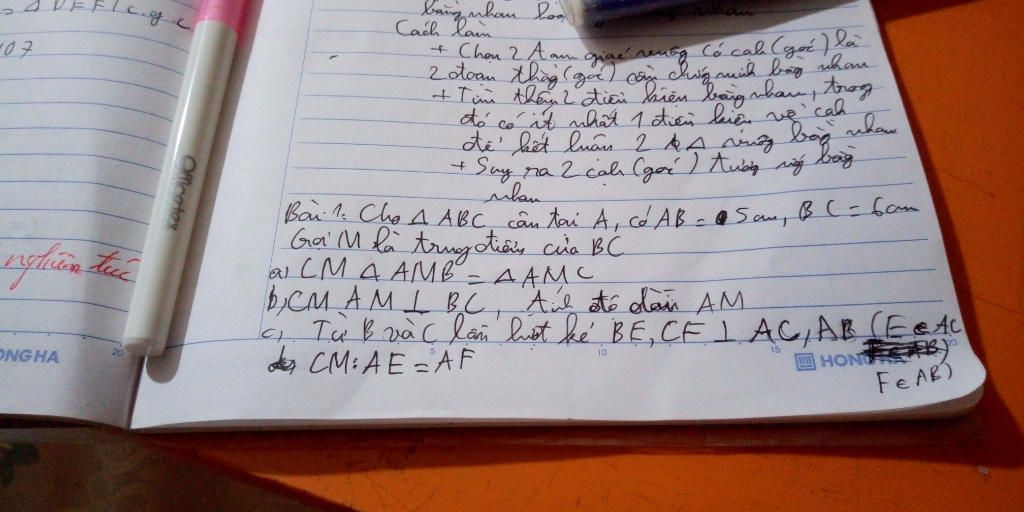 = Δ DEF (c.g.c
107
nghiêm túc
Officetex
bằng nhau hoặc nhau
Cách làm
+ Chọn 2 tam giác vuông có cạh (góc) là
2 đoạn thẳg (góc) cần chứg minh bằg nhau
+ Tìm thêm 2 điều kiện bằng nhau, trog
đó có ít nhất 1 điều kiện về cạh
để kết luận 2 Δ vuông bằg nhau
+ Suy ra 2 cạh (góc) tươg ứg bằg
nhau
Bài 1: Cho Δ ABC cân tại A, có AB = 5 cm, BC = 6cm
Gọi M là trung điểm của BC
a) CM Δ AMB = Δ AMC
b, CM AM ⊥ BC, tíh độ dài AM
c, Từ B và C lần lượt kẻ BE, CF ⊥ AC, AB (E ∈ AC
F ∈ AB)
CM: AE = AF
ONG HA 20 5 10 15 HONG HA 20